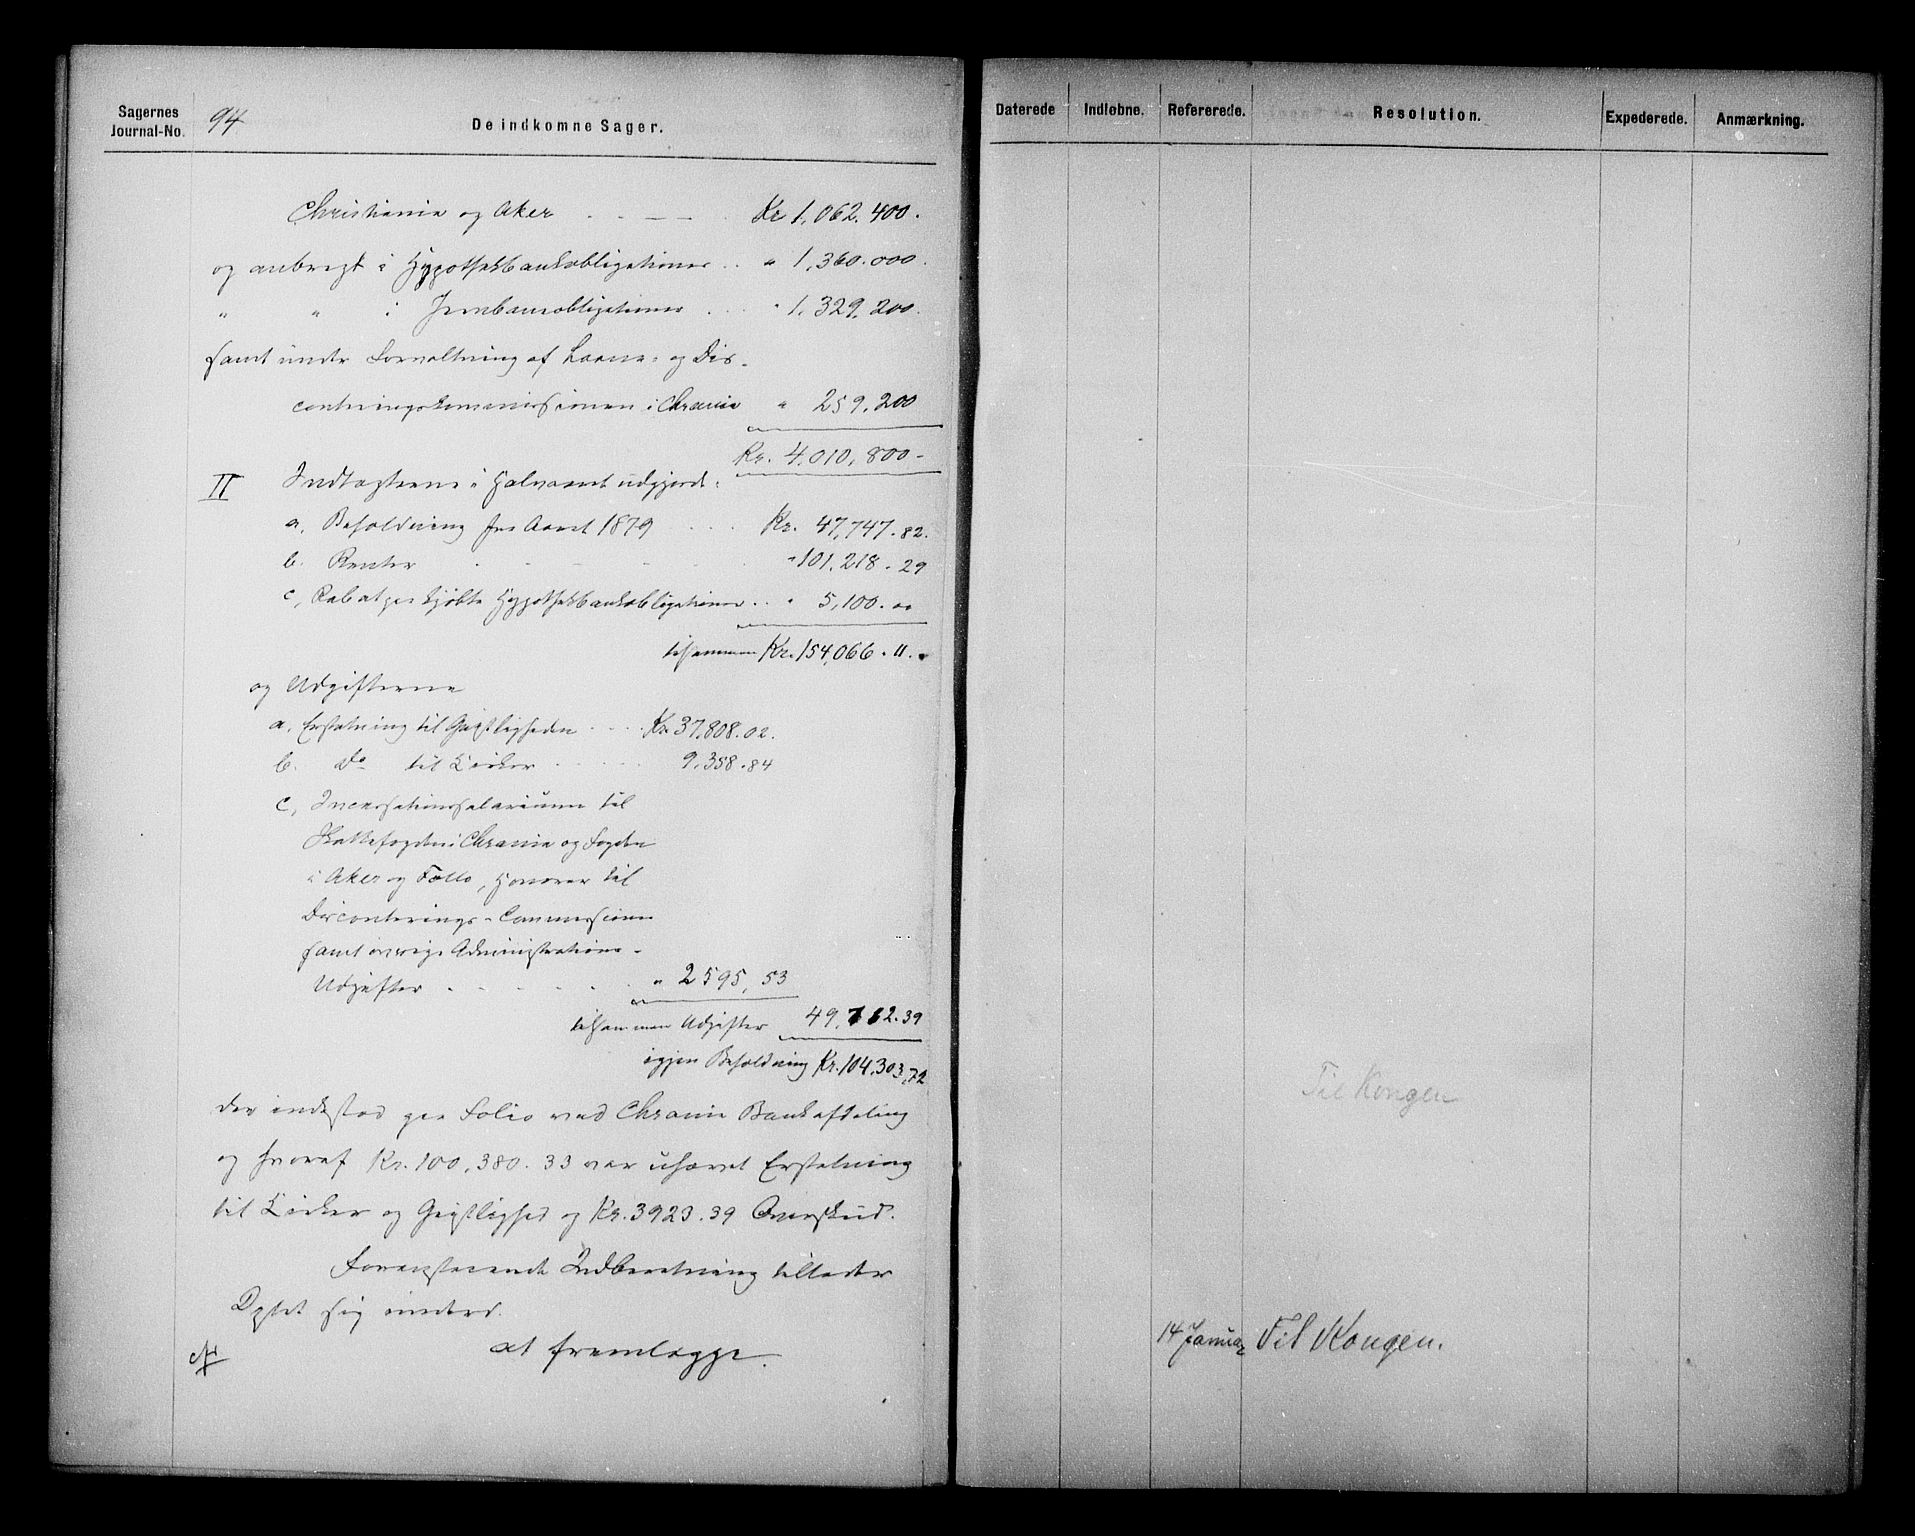 Sagernes
Journal-No.
94
De indkomne Sager.
Christiania og Aker . . — — . Kr 1,062.400.
og anbragt i Hypothekbankobligationer . . " 1,360.000.
" " i Jernbaneobligationer . . . " 1,329,200.
samt under Forvaltning af Laane- og Dis-
conteringskommissionen i Chrania " 259,200
Kr. 4,010,800-
II Indtægterne i Halvaaret udgjorde:
a, Beholdning fra Aaret 1879 . . . . Kr. 47,747.82.
b. Renter . . . . . . "101,218.29
c, Rabat paa kjøbte Hypothekbankobligationer . . " 5,100.00
tilsammen Kr.154,066.11.
og Udgifterne
a, Erstatning til Geistligheden . . . . Kr.37,808.02.
b. Do til Kirker . . . . . 9,358.84
c, Incassationssalarium til
Skattefogden i Chrania og Fogden
i Aker og Follo, Honorar til
Disconterings-Commissionen
samt øvrige Administrations-
Udgifter . . . . . . " 2595,53
tilsammen Udgifter 49,762.39
igjen Beholdning Kr.104,303,72
der indestod paa Folio ved Chrania Bankafdeling
og hvoraf Kr.100,380.33 var uhævet Erstatning
til Kirker og Geistlighed og Kr.3923.39 Overskud.
Foranstaaende Indberetning tillader
Dptet sig underd.
at fremlægge.
Daterede
Indløbne.
Refererede.
Resolution.
Expederede.
Anmærkning.
Til Kongen
14 Januar Til Kongen.